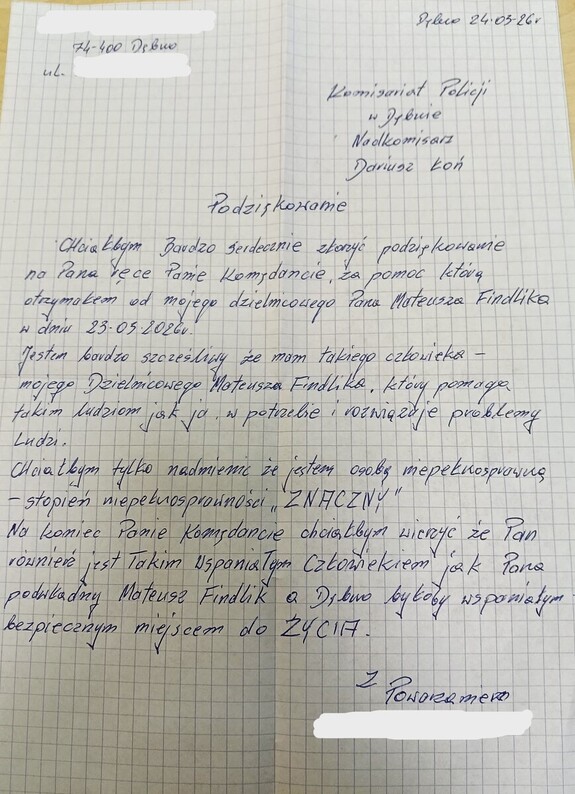 Dębno 24.05.26r
74-400 Dębno
ul.
Komisariat Policji
w Dębnie
Nadkomisarz
Dariusz Łoń
Podziękowanie
Chciałbym Bardzo serdecznie złożyć podziękowanie
na Pana ręce Panie Komędancie, za pomoc którą
otrzymałem od mojego dzielnicowego Pana Mateusza Findlika
w dniu 23-05-2026r.
Jestem bardzo szcześliwy że mam takiego człowieka –
mojego Dzielnicowego Mateusza Findlika, który pomaga
takim ludziom jak ja, w potrzebie i rozwiązuje problemy
Ludzi.
Chciałbym tylko nadmienić że jestem osobą niepełnosprawną
– stopień niepełnosprawności „ZNACZNY"
Na koniec Panie Komędancie chciałbym wierzyć że Pan
również jest Takim Wspaniałym Człowiekiem jak Pana
podwładny Mateusz Findlik a Dębno byłoby wspaniałym –
bezpiecznym miejscem do ŻYCIA.
Z
Poważaniem